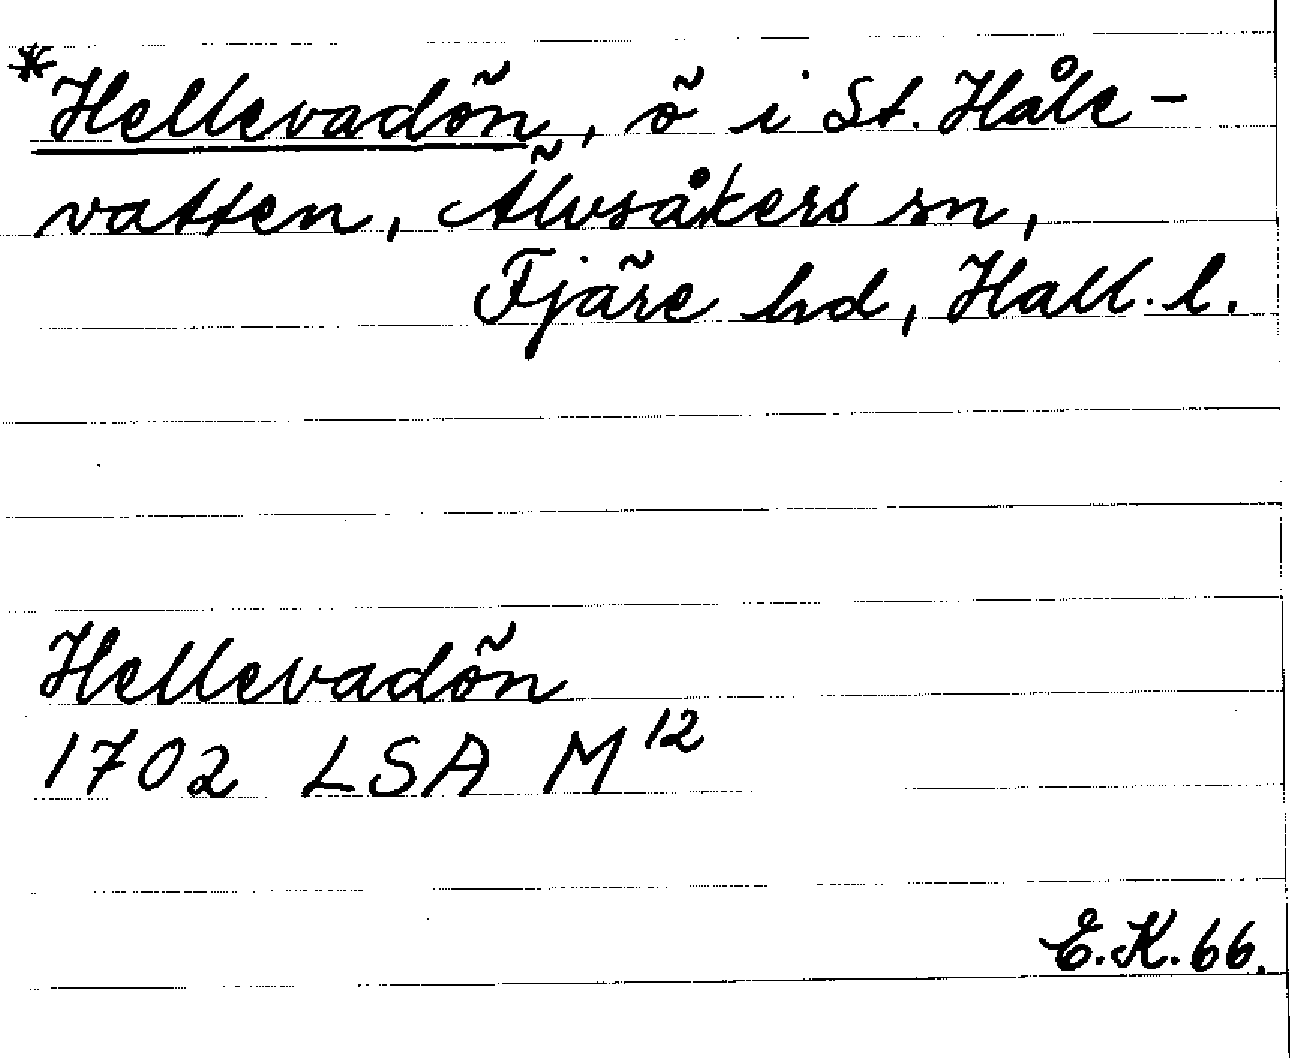 *Hellevadön, ö i St. Håle-
vatten, Älvsåkers sn,
Fjäre hd, Hall. l.
Hellevadön
1702 LSA M¹²
E.K. 66.